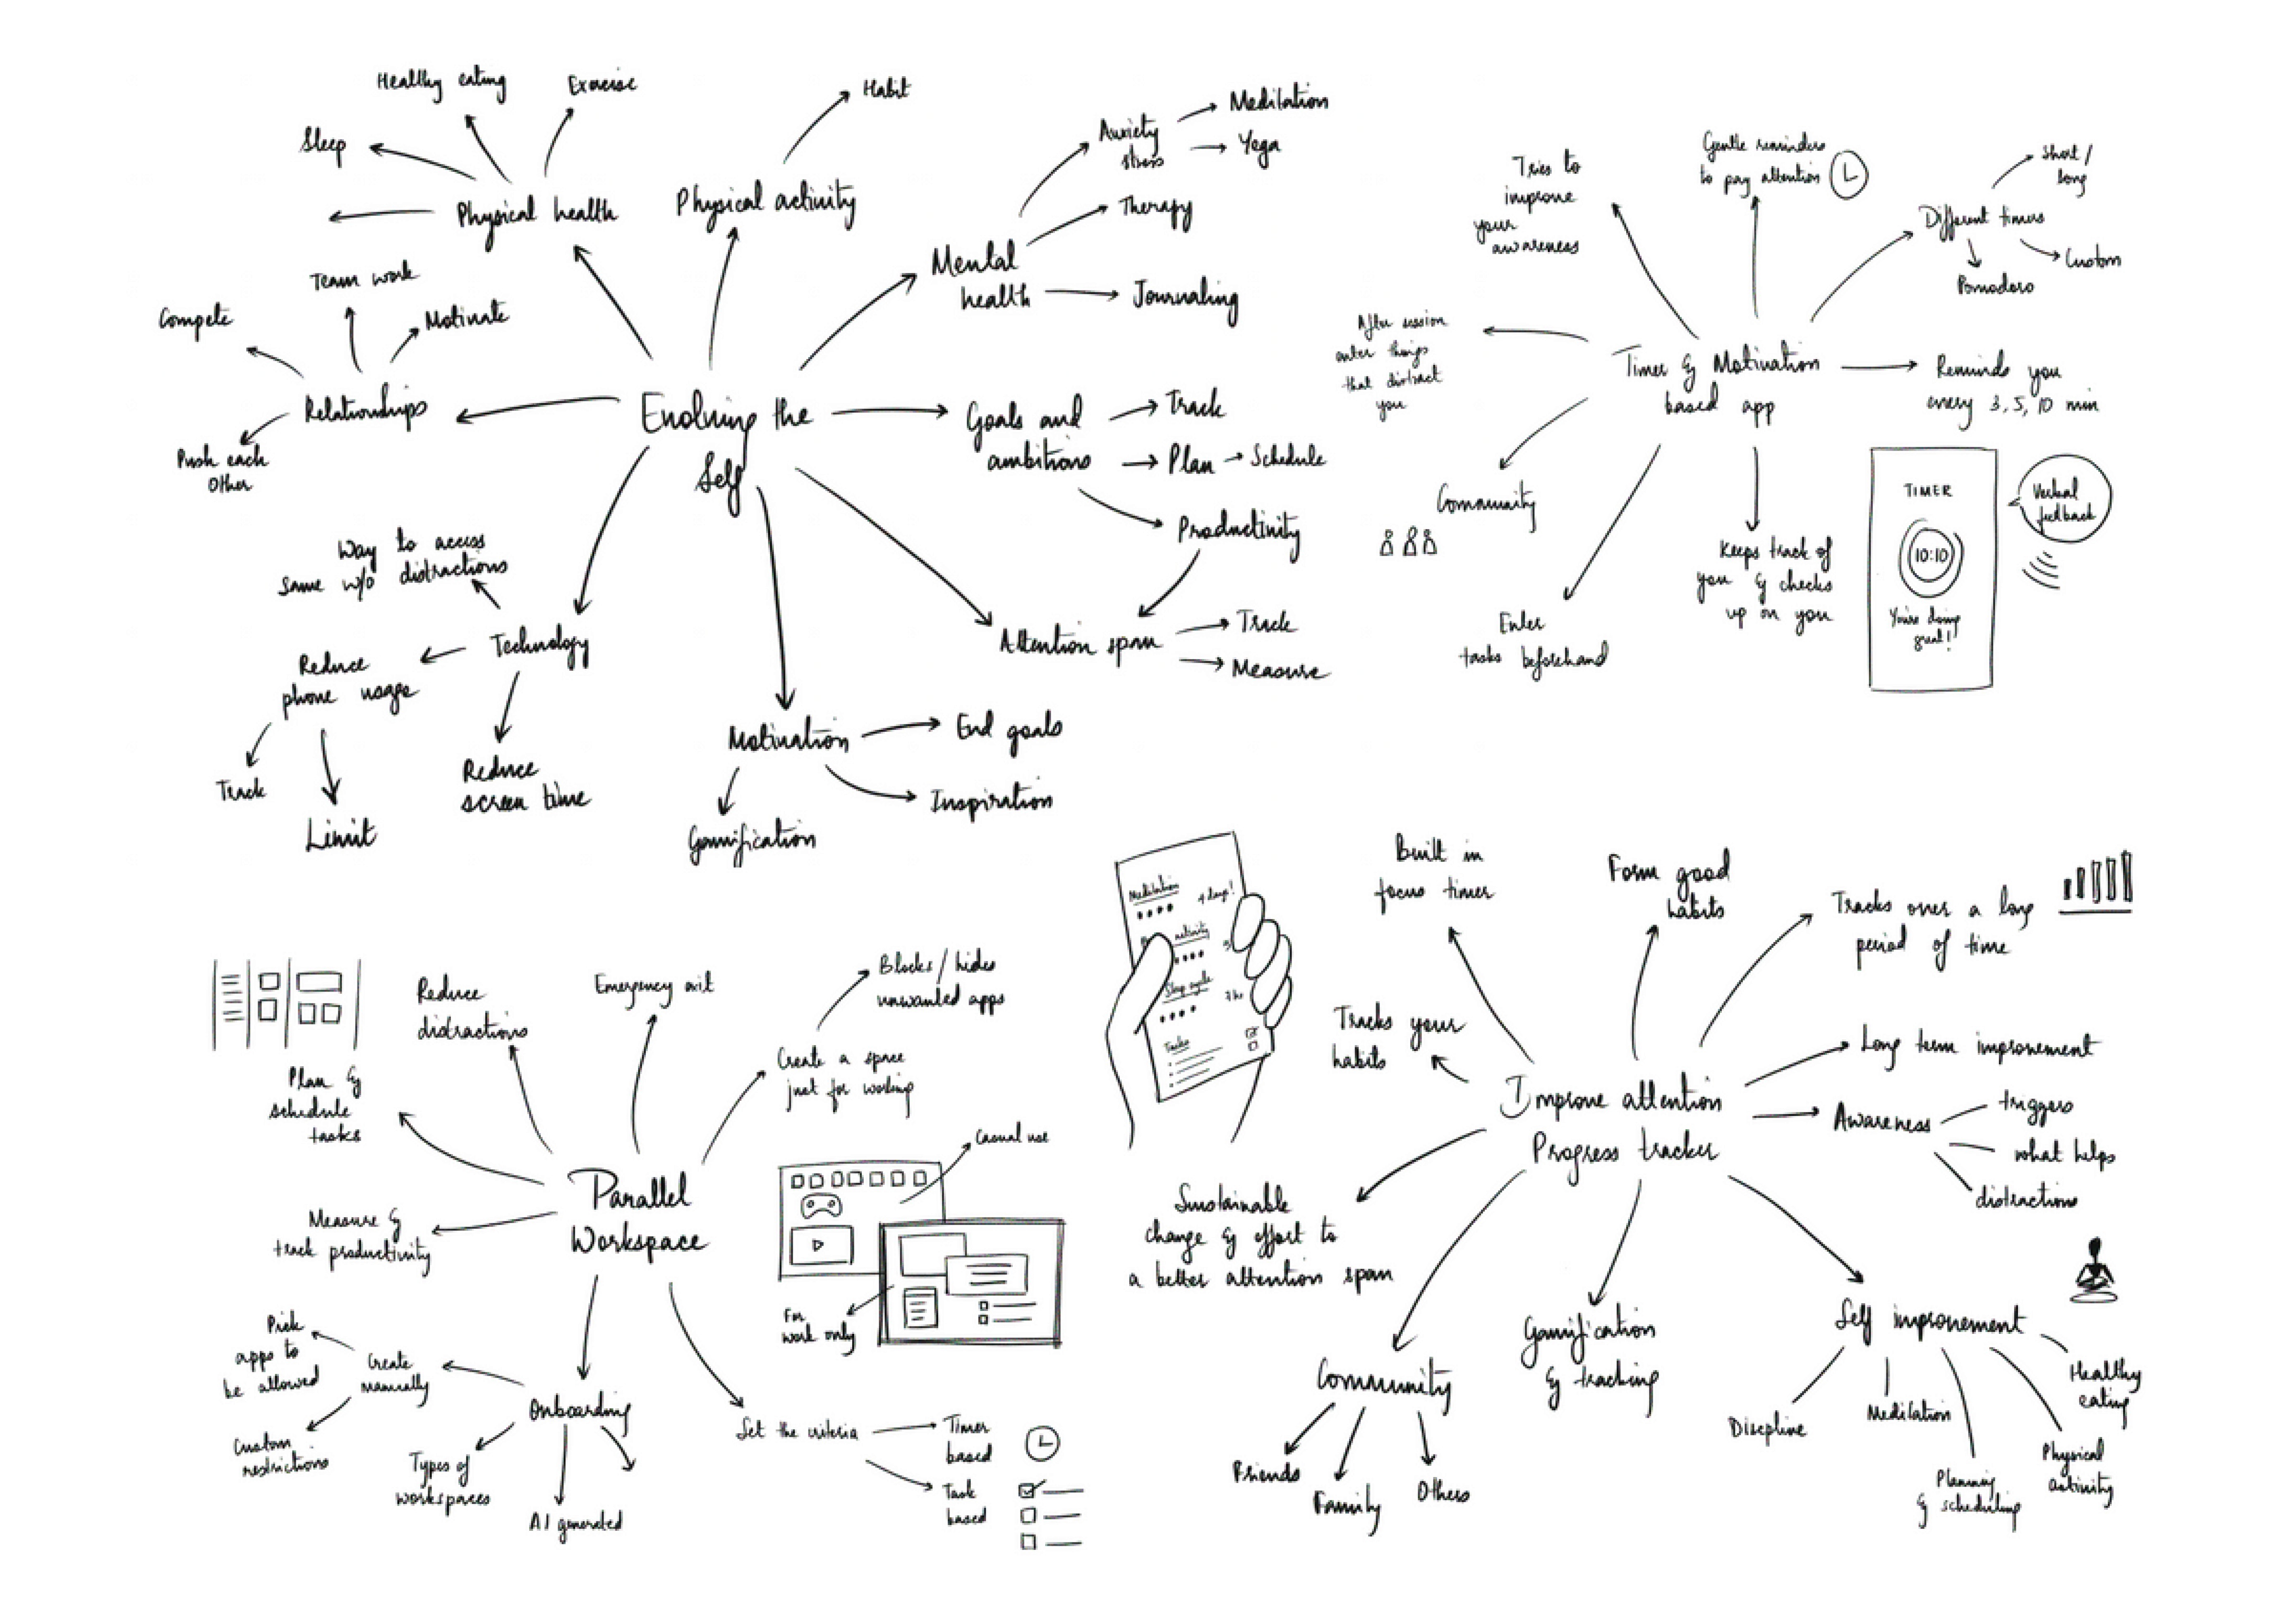 Healthy eating
Exercise
Sleep
Physical health
Habit
Physical activity
Anxiety
stress
Meditation
Yoga
Therapy
Mental
health
Journaling
Team work
Compete
Motivate
Relationships
Push each
Other
Evolving the
Self
Goals and
ambitions
Track
Plan
Schedule
Productivity
Attention span
Track
Measure
Way to access
same w/o distractions
Technology
Reduce
phone usage
Track
Limit
Reduce
screen time
Motivation
End goals
Inspiration
Gamification
Tries to
improve
your
awareness
Gentle reminders
to pay attention
Short/
long
Different timers
Custom
Pomodoro
After session
enter things
that distract
you
Timer & Motivation
based app
Reminds you
every 3, 5, 10 min
Community
Enter
tasks beforehand
Keeps track of
you & checks
up on you
TIMER
10:10
You're doing
great!
Verbal
feedback
Reduce
distractions
Emergency exit
Blocks/hides
unwanted apps
Create a space
just for working
Plan &
schedule
tasks
Parallel
Workspace
Measure &
track productivity
Casual use
For
work only
Pick
apps to
be allowed
Create
manually
Custom
restrictions
Onboarding
Types of
workspaces
AI generated
Set the criteria
Timer
based
Task
based
Meditation
4 days!
activity
Sleep cycle
Tasks
Built in
focus timer
Form good
habits
Tracks over a long
period of time
Tracks your
habits
Improve attention
Progress tracker
Long term improvement
Awareness
triggers
what helps
distractions
Sustainable
change & effort to
a better attention span
Community
Friends
Family
Others
Gamification
& tracking
Self improvement
Discipline
Meditation
Planning
& scheduling
Physical
activity
Healthy
eating